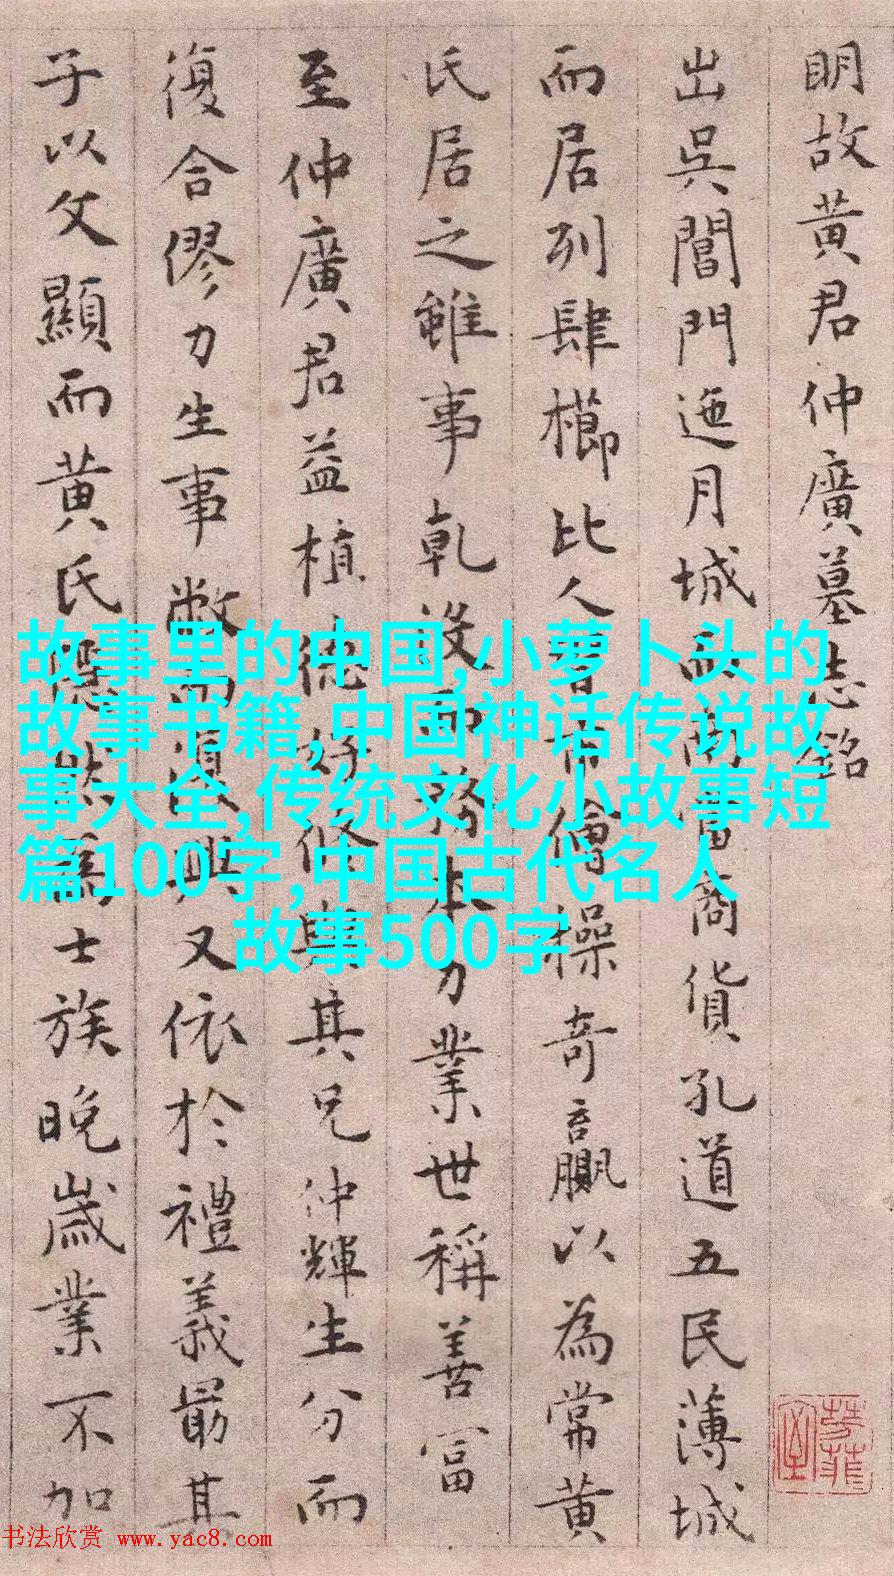 明故黄君仲廣墓志銘
出吳閶門迤月城而南富商貨孔道五民薄城
而居列肆櫛比人習市儈操奇贏以為常黄
氏居之雖事乾没而務本力業世稱善富
至仲廣君益植德好修與其兄仲輝生分而
復合僇力生事敝而復興又依於禮義最其
子以文顯而黄氏隱然為士族晚歲業不加
故事里的中国,小萝卜头的
故事书籍,中国神话传说故
事大全,传统文化小故事短
篇100字,中国古代名人
故事500字
书法欣赏 www.yac8.com